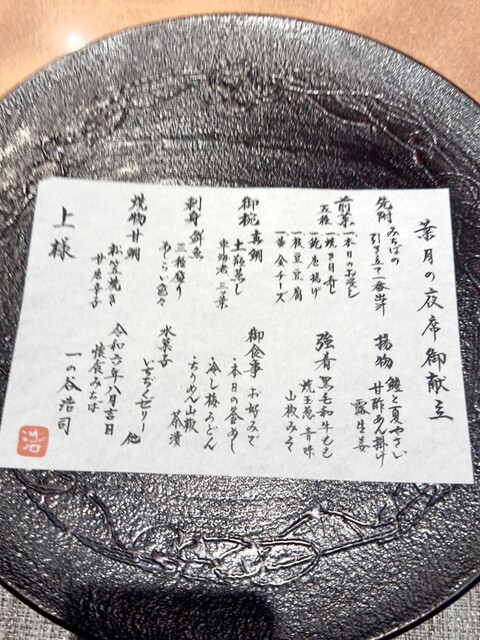 葉月の夜席御献立
先附 みちはの
引き立て一番出汁
前菜 一本日のお浸し
五種 一焼き目寿し
一鶏唐揚げ
一枝豆豆腐
一黄金チーズ
御椀 真鯛
土瓶蒸し
車海老 三つ葉
刺身 鮮魚
三種盛り
あしらい色々
焼物 甘鯛
松笠焼き
揚物 鱧と夏やさい
甘酢あん掛け
露生姜
強肴 黒毛和牛もも
焼玉葱 青味
山椒みそ
御食事 お好みで
・本日の釜めし
・冷し梅うどん
・ちりめん山椒
茶漬
水菓子
いちぢくゼリー 他
令和六年八月吉日
懐食みちば
一の谷浩司
上様
浩